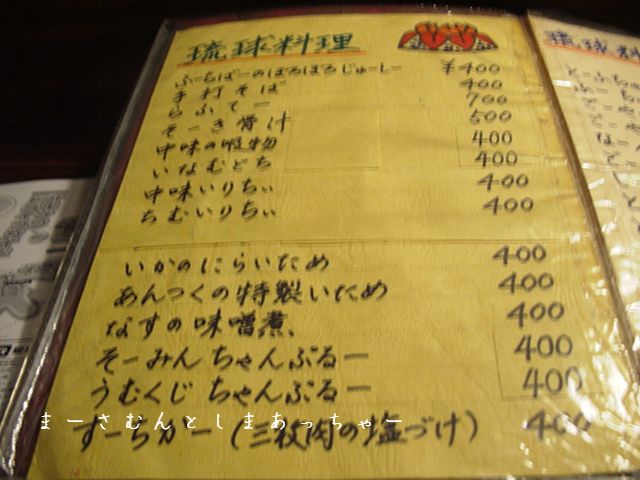 琉球料理
ふーちばーのぼろぼろじゅーしー ¥400
手打そば 400
らふてー 700
そーき骨汁 500
中味の吸物 400
いなむどち 400
中味いりちぃ 400
ちむいりちぃ 400
いかのにらいため 400
あんつくの特製いため 400
なすの味噌煮、 400
そーみんちゃんぷるー 400
うむくじちゃんぷるー 400
すーちかー(三枚肉の塩づけ) 400
まーさむんとしまあっちゃー
琉球料